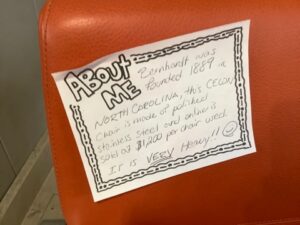 About
ME
Bernhardt was
Founded 1889 in
NORTH CAROLINA, this CELON
Chair is made of polished
stainless steel and online is
sold at $1,200 per chair used.
It is VERY Heavy!!